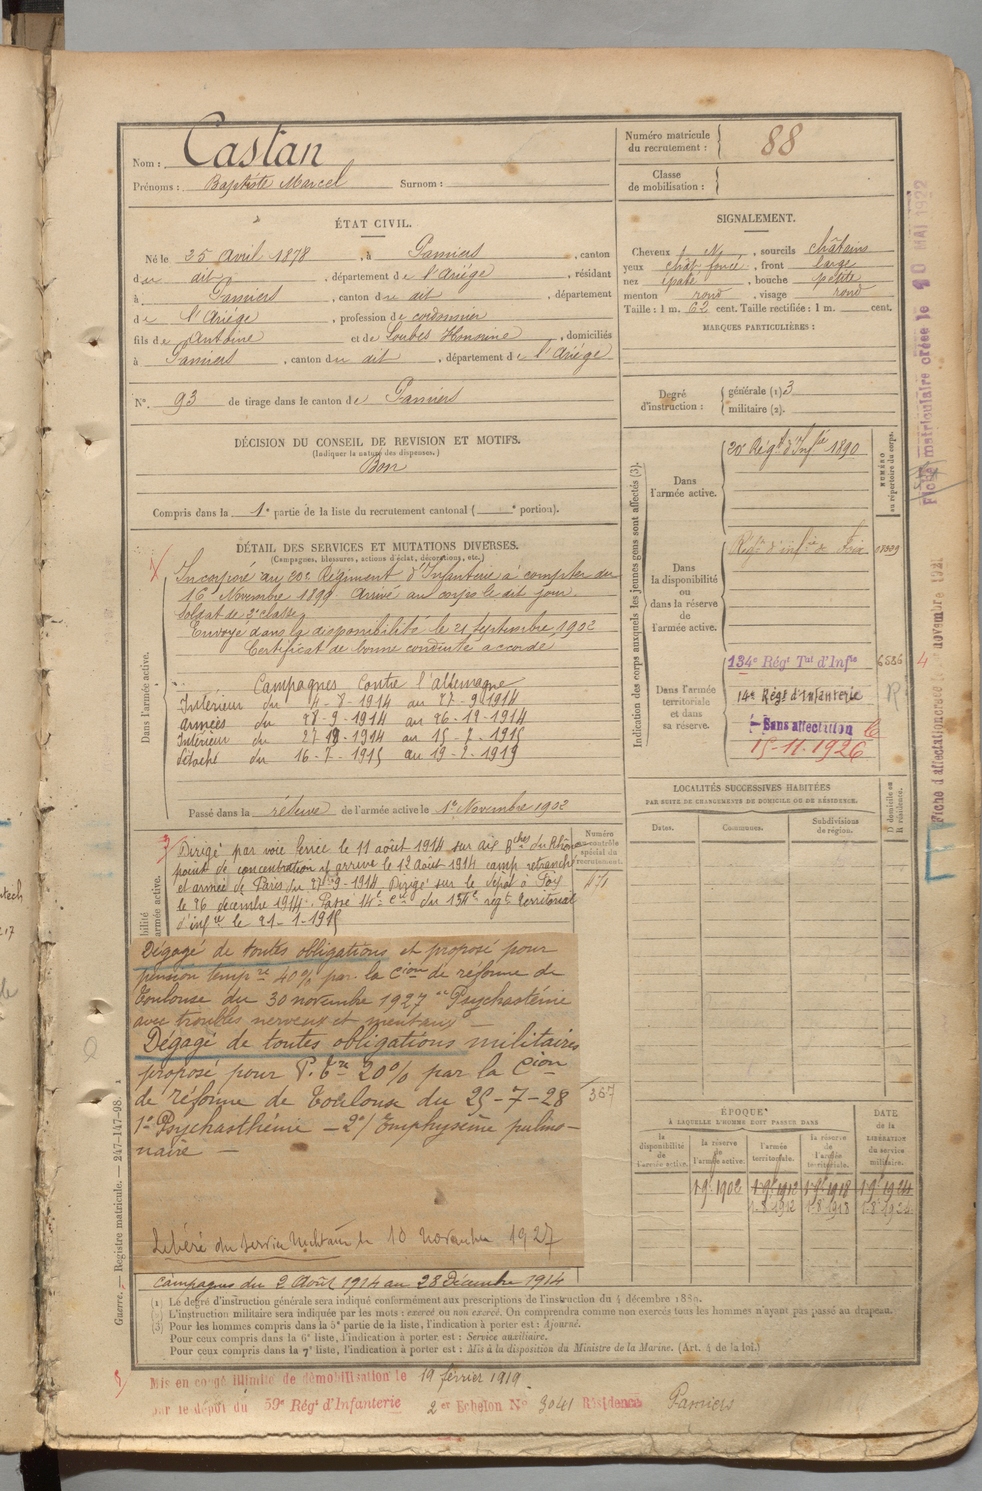 Nom : Castan
Prénoms : Baptiste Marcel Surnom :
Numéro matricule du recrutement : 88
Classe de mobilisation :
ÉTAT CIVIL.
Né le 25 avril 1878, à Pamiers, canton
du dit, département de l'Ariège, résidant
à Pamiers, canton du dit, département
de l'Ariège, profession de cordonnier
fils de Antoine et de Soubes Honorine, domiciliés
à Pamiers, canton du dit, département de l'Ariège
N° 93 de tirage dans le canton de Pamiers
SIGNALEMENT.
Cheveux f. N, sourcils châtains
yeux chât foncé, front large
nez épaté, bouche petite
menton rond, visage rond
Taille : 1 m. 62 cent. Taille rectifiée : 1 m. cent.
MARQUES PARTICULIÈRES :
Degré d'instruction : générale (1) 3
militaire (2).
DÉCISION DU CONSEIL DE REVISION ET MOTIFS.
(Indiquer la nature des dispenses.)
Bon
Compris dans la 1e partie de la liste du recrutement cantonal ( e portion).
DÉTAIL DES SERVICES ET MUTATIONS DIVERSES.
(Campagnes, blessures, actions d'éclat, décorations, etc.)
Dans l'armée active.
Incorporé au 20e Régiment d'Infanterie à compter du
16 Novembre 1899. Arrivé au corps le dit jour.
soldat de 2e classe
Envoyé dans la disponibilité le 21 septembre 1902
Certificat de bonne conduite accordé
Campagnes Contre l'allemagne
Intérieur du 4-8-1914 au 27-9-1914
armées du 28-9-1914 au 26-12-1914
Intérieur du 27-12-1914 au 15-7-1915
détaché du 16-7-1915 au 19-2-1919
Passé dans la réserve de l'armée active le 1er Novembre 1902
Dirigé par voie ferrée le 11 août 1914 sur aix Bches du Rhône
point de concentration y arrivé le 12 août 1914 camp retranché
et armée de Paris du 27-9-1914. Dirigé sur le dépôt à Foix
le 26 décembre 1914. Passé 14e Cie du 134e régt territorial
d'infrie le 21-1-1915
Numéro au contrôle spécial du recrutement.
471
Dégagé de toutes obligations et proposé pour
pension tempre 40% par la Cion de réforme de
Toulouse du 30 novembre 1927 "Psychasténie
avec troubles nerveux et mentaux" —
Dégagé de toutes obligations militaires
proposé pour P. tre 20% par la Cion
de réforme de Toulouse du 25-7-28
1° Psychasthénie — 2°/ Emphysème pulmo-
naire —
367
Libéré du service Militaire le 10 novembre 1927
Campagnes du 2 Août 1914 au 28 Décembre 1914
Indication des corps auxquels les jeunes gens sont affectés (3).
NUMÉRO au répertoire du corps.
Dans l'armée active.
20e Régt d'Infie 1890
Dans la disponibilité ou dans la réserve de l'armée active.
Régt d'infie de Foix
Dans l'armée territoriale et dans sa réserve.
134e Régt Tal d'Infie 6586
14e Régt d'Infanterie R
Sans affectation
15-11-1926
LOCALITÉS SUCCESSIVES HABITÉES
PAR SUITE DE CHANGEMENTS DE DOMICILE OU DE RÉSIDENCE.
Dates. Communes. Subdivisions de région.
D domicile ou R résidence.
ÉPOQUE
À LAQUELLE L'HOMME DOIT PASSER DANS
DATE de la LIBÉRATION du service militaire.
la disponibilité de l'armée active. la réserve de l'armée active. l'armée territoriale. la réserve de l'armée territoriale.
1-9e 1902 1-9e 1912 1-9e 1918 1-9e 1924
1-8-1912 1-8-1918 1-8-1924
(1) Le degré d'instruction générale sera indiqué conformément aux prescriptions de l'instruction du 4 décembre 1889.
(2) L'instruction militaire sera indiquée par les mots : exercé ou non exercé. On comprendra comme non exercés tous les hommes n'ayant pas passé au drapeau.
(3) Pour les hommes compris dans la 5e partie de la liste, l'indication à porter est : Ajourné.
Pour ceux compris dans la 6e liste, l'indication à porter est : Service auxiliaire.
Pour ceux compris dans la 7e liste, l'indication à porter est : Mis à la disposition du Ministre de la Marine. (Art. 4 de la loi.)
Mis en congé illimité de démobilisation le 19 février 1919.
par le dépôt du 59e Régt d'Infanterie 2 er Echelon N° 3041 Résidence Pamiers
Guerre. — Registre matricule. — 247-147-98.
Fiche matriculaire créée le 10 MAI 1922
Fiche d'affectation créée le novembre 1921